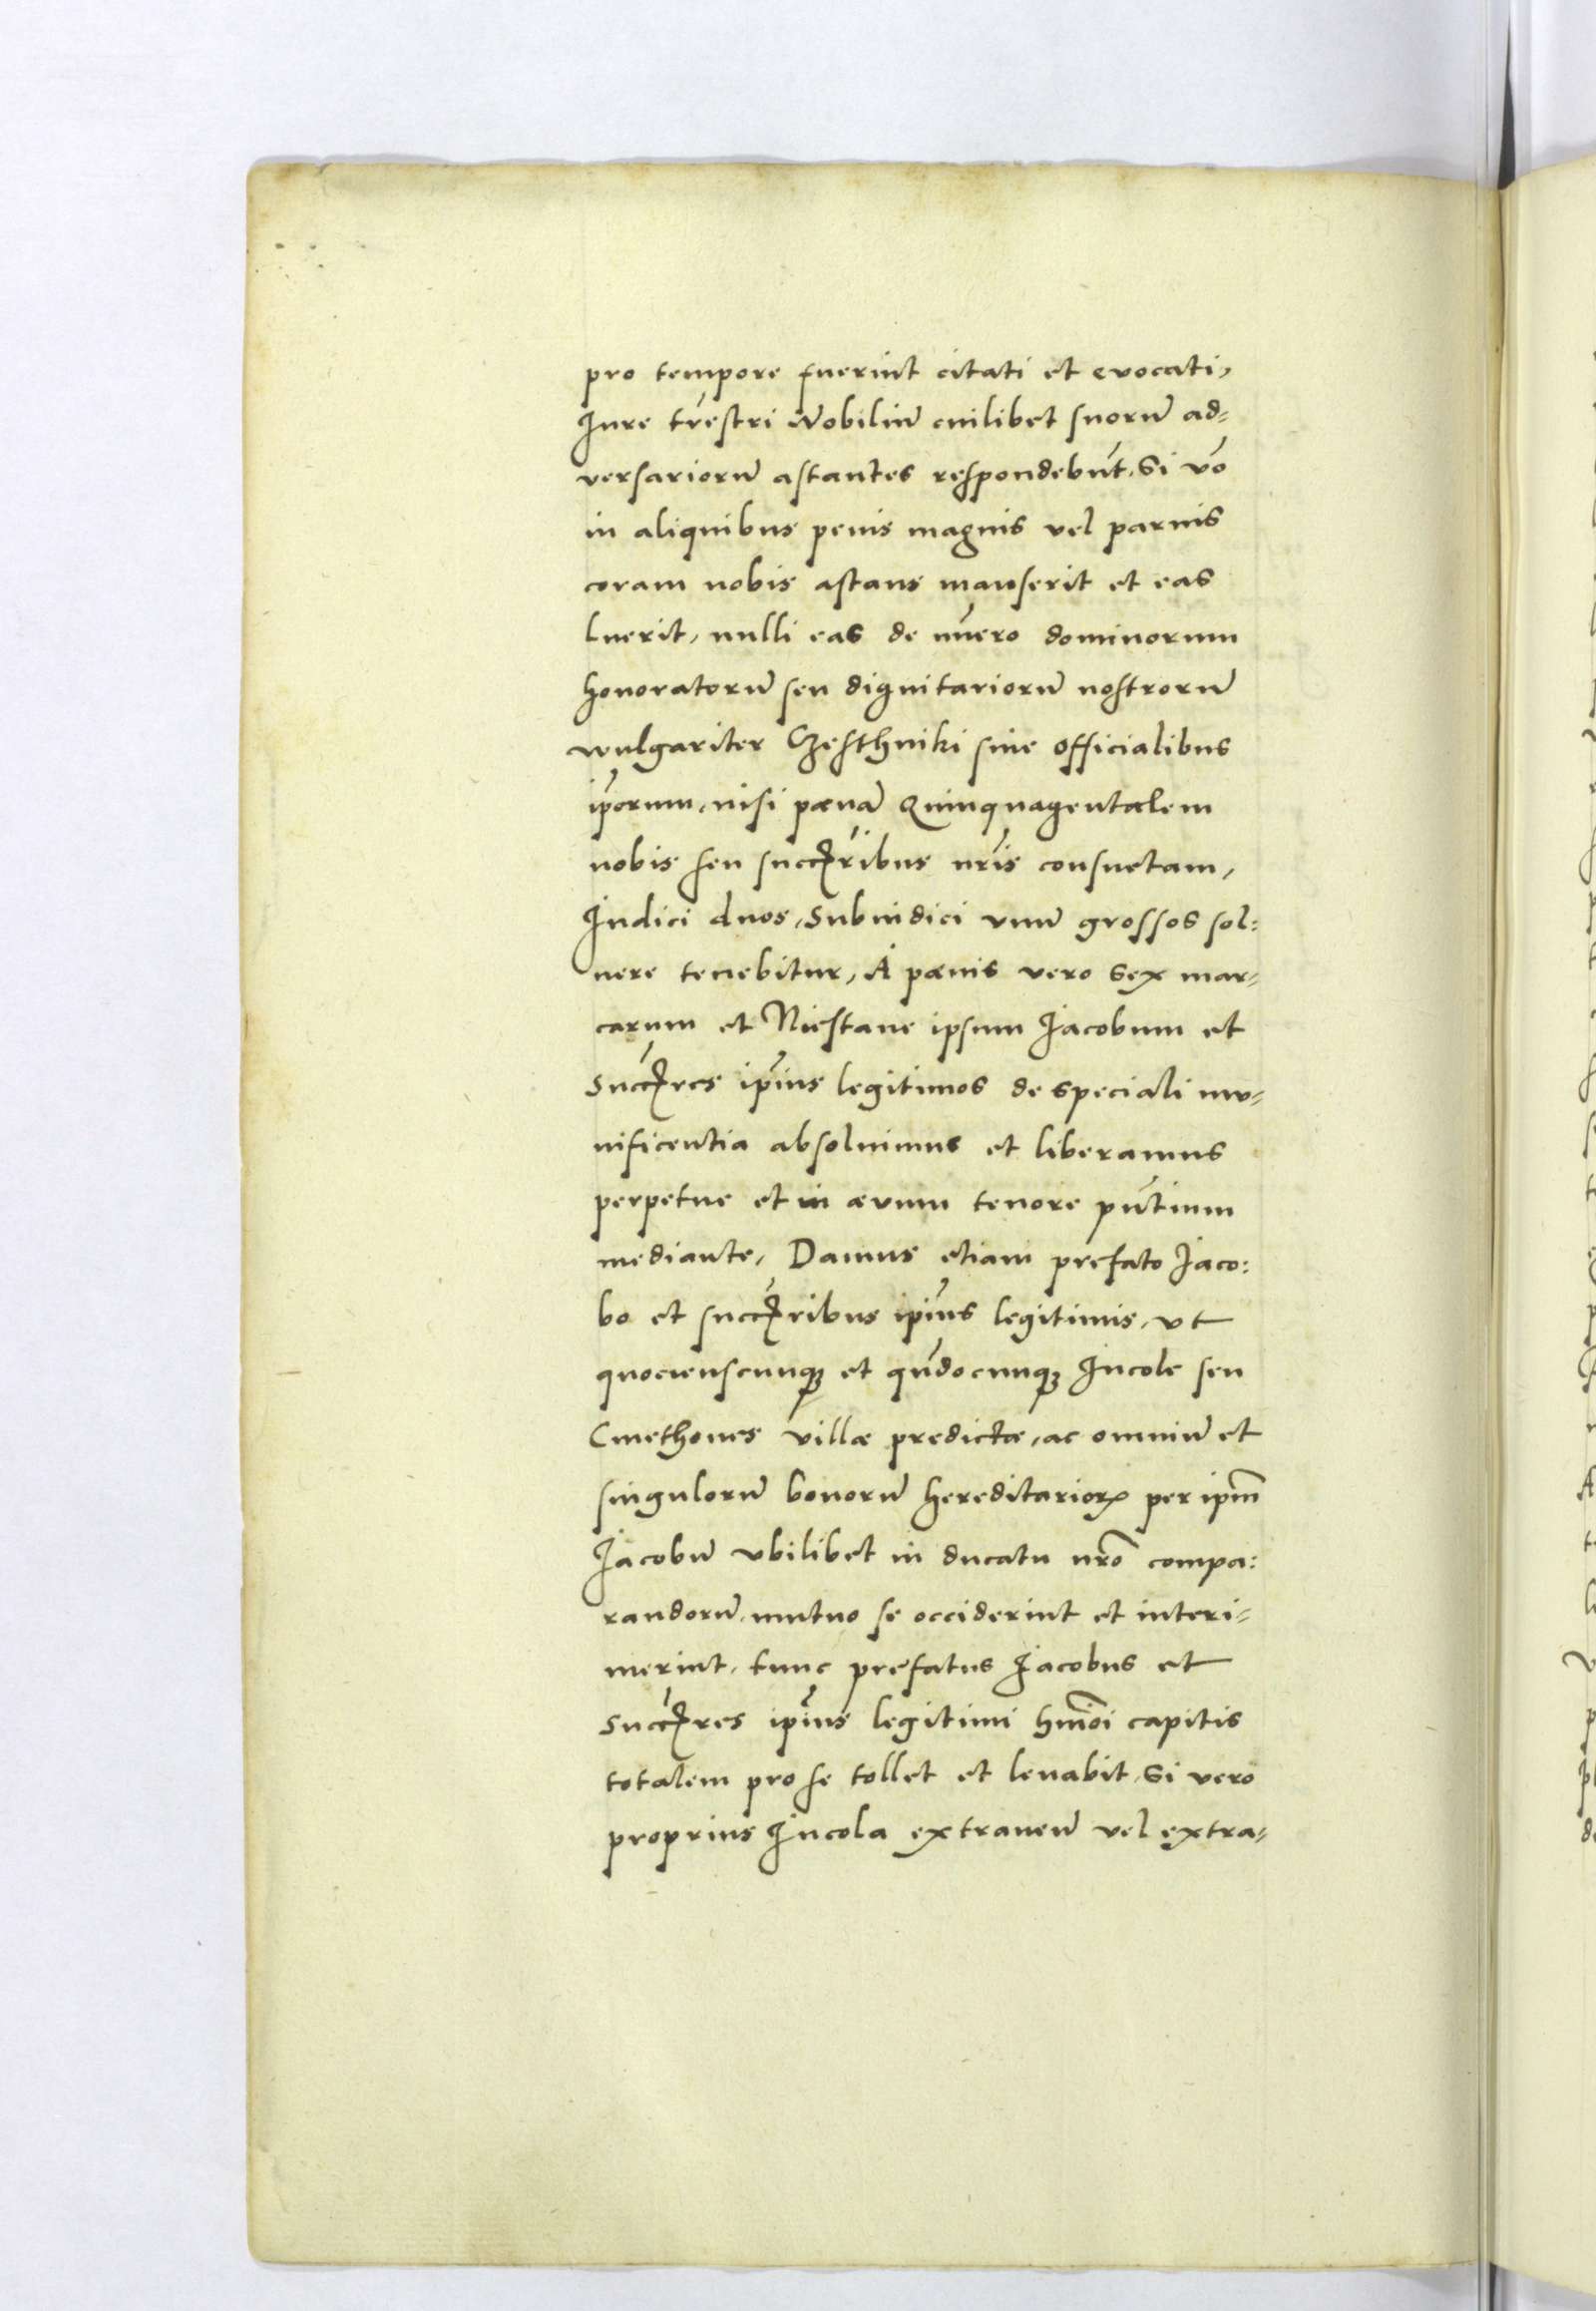 pro tempore fuerint citati et evocati,
Iure tr̃estri Nobiliũ cuilibet suorũ ad-
versariorũ astantes respondebũt. Si võ
in aliquibus penis magnis vel parvis
coram nobis astans manserit et eas
luerit, nulli eas de nũero dominorum
honoratorũ seu dignitariorũ nostrorũ
wulgariter Czesthniki sive officialibus
ip̃orum, nisi pœnã Quinquagentalem
nobis seu succr̃ibus nr̃is consuetam,
Iudici duos, Subiudici unũ grossos sol:
vere tenebitur, A pœnis vero sex mar-
carum et Niestane ipsum Iacobum et
Succ̃res ip̃ius legitimos de speciali mu-
nificentia absolvimus et liberamus
perpetue et in ævum tenore pñtium
mediante. Damus etiam prefato Iaco:
bo et succr̃ibus ip̃ius legitimis, ut
quocienscunq; et qũdocunq; Incole seu
Cmethones villæ predictæ, ac omniũ et
singulorũ bonorũ hereditarioꝝ per ip̃m
Iacobũ ubilibet in ducatu nr̃o compa:
randorũ mutuo se occiderint et interi-
merint, tunc prefatus Iacobus et
Succ̃res ip̃ius legitimi hm̃oi capitis
totalem pro se tollet et levabit, Si vero
proprius Incola extraneũ vel extra-